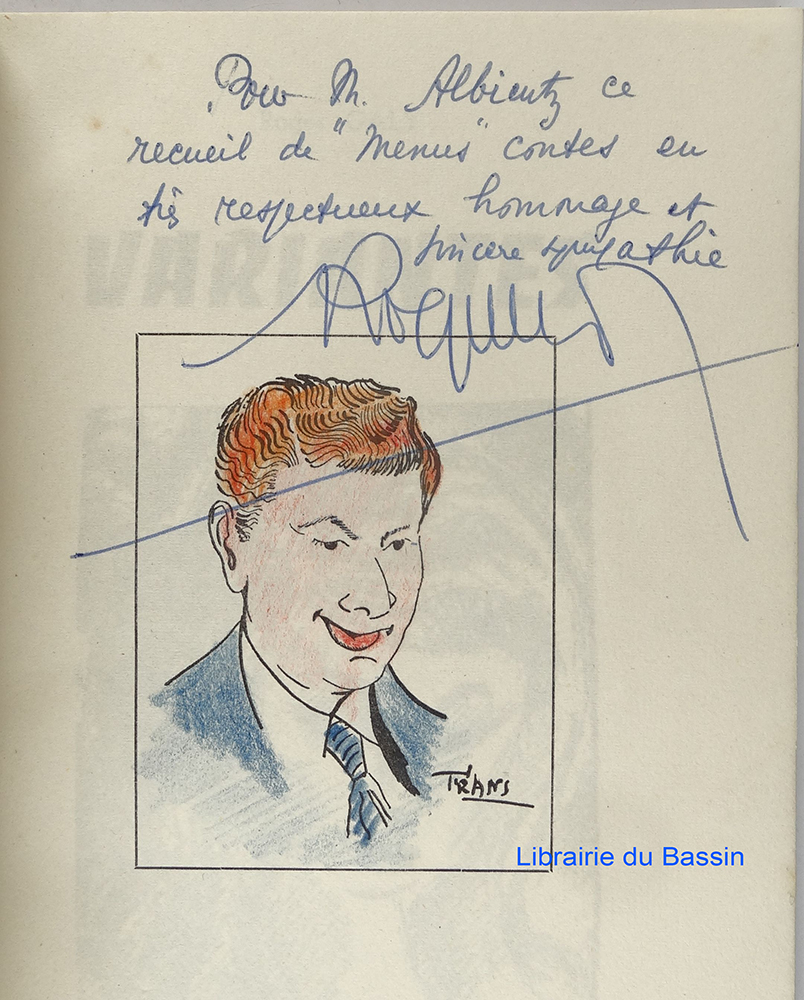 Pour M. Albientz ce
recueil de "Menus" contes en
très respectueux hommage et
sincère sympathie
TRANS
Librairie du Bassin